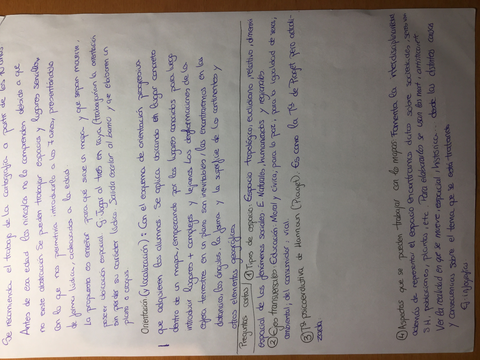 Se recomienda el trabajo de la cartografía a partir de los 10 años
Antes de esa edad los mapas no lo comprenden debido a que
no existe abstracción. Se pueden trabajar espacios y lugares sencillos,
con lo que nos permitiría introducirlo a los 7 años, presentándolo
de forma lúdica, adecuándolo a la edad.
La propuesta es entender para qué sirve un mapa y que sepan moverse,
poseer decisión espacial. Ej: Jugar al tres en raya (trabajarían la orientación
sin perder su carácter lúdico. Salida exterior al barrio y que elaboren un
plano o croquis
Orientación (y localización): Con el esquema de orientación progresiva
que adquieren los alumnos. Se aplica ubicando en lugar concreto
dentro de un mapa, empezando por los lugares conocidos para luego
introducir lugares + complejos y lejanos. Las deformaciones de la
esfera terrestre en un plano son inevitables y las encontraremos en las
distancias, los ángulos, la forma y la superficie de los continentes y
otros elementos geográficos.
Preguntas cortas: ① Tipos de espacio: Espacio topológico, euclidiano, relativo, dimensión
espacial de los fenómenos sociales. E. Naturales, humanizados y regionales
② Ejes transversales: Educación Moral y cívica, para la paz, para la igualdad de sexo,
ambiental, del consumidor, vial.
③ Tª psicoevolutiva de Hannoun (Piaget). Es como la Tª de Piaget pero actuali-
zada.
④ Aspectos que se pueden trabajar con los mapas: Fomenta la interdisciplinariedad
además de representar el espacio encontramos datos sobre sociedades,
, producciones, pisos, etc. Para elaborarlos se usan
Ve la realidad en que se mueve, espacial, histórica. desde las distintas causas
y consecuencias sobre el tema que se está trabajando.